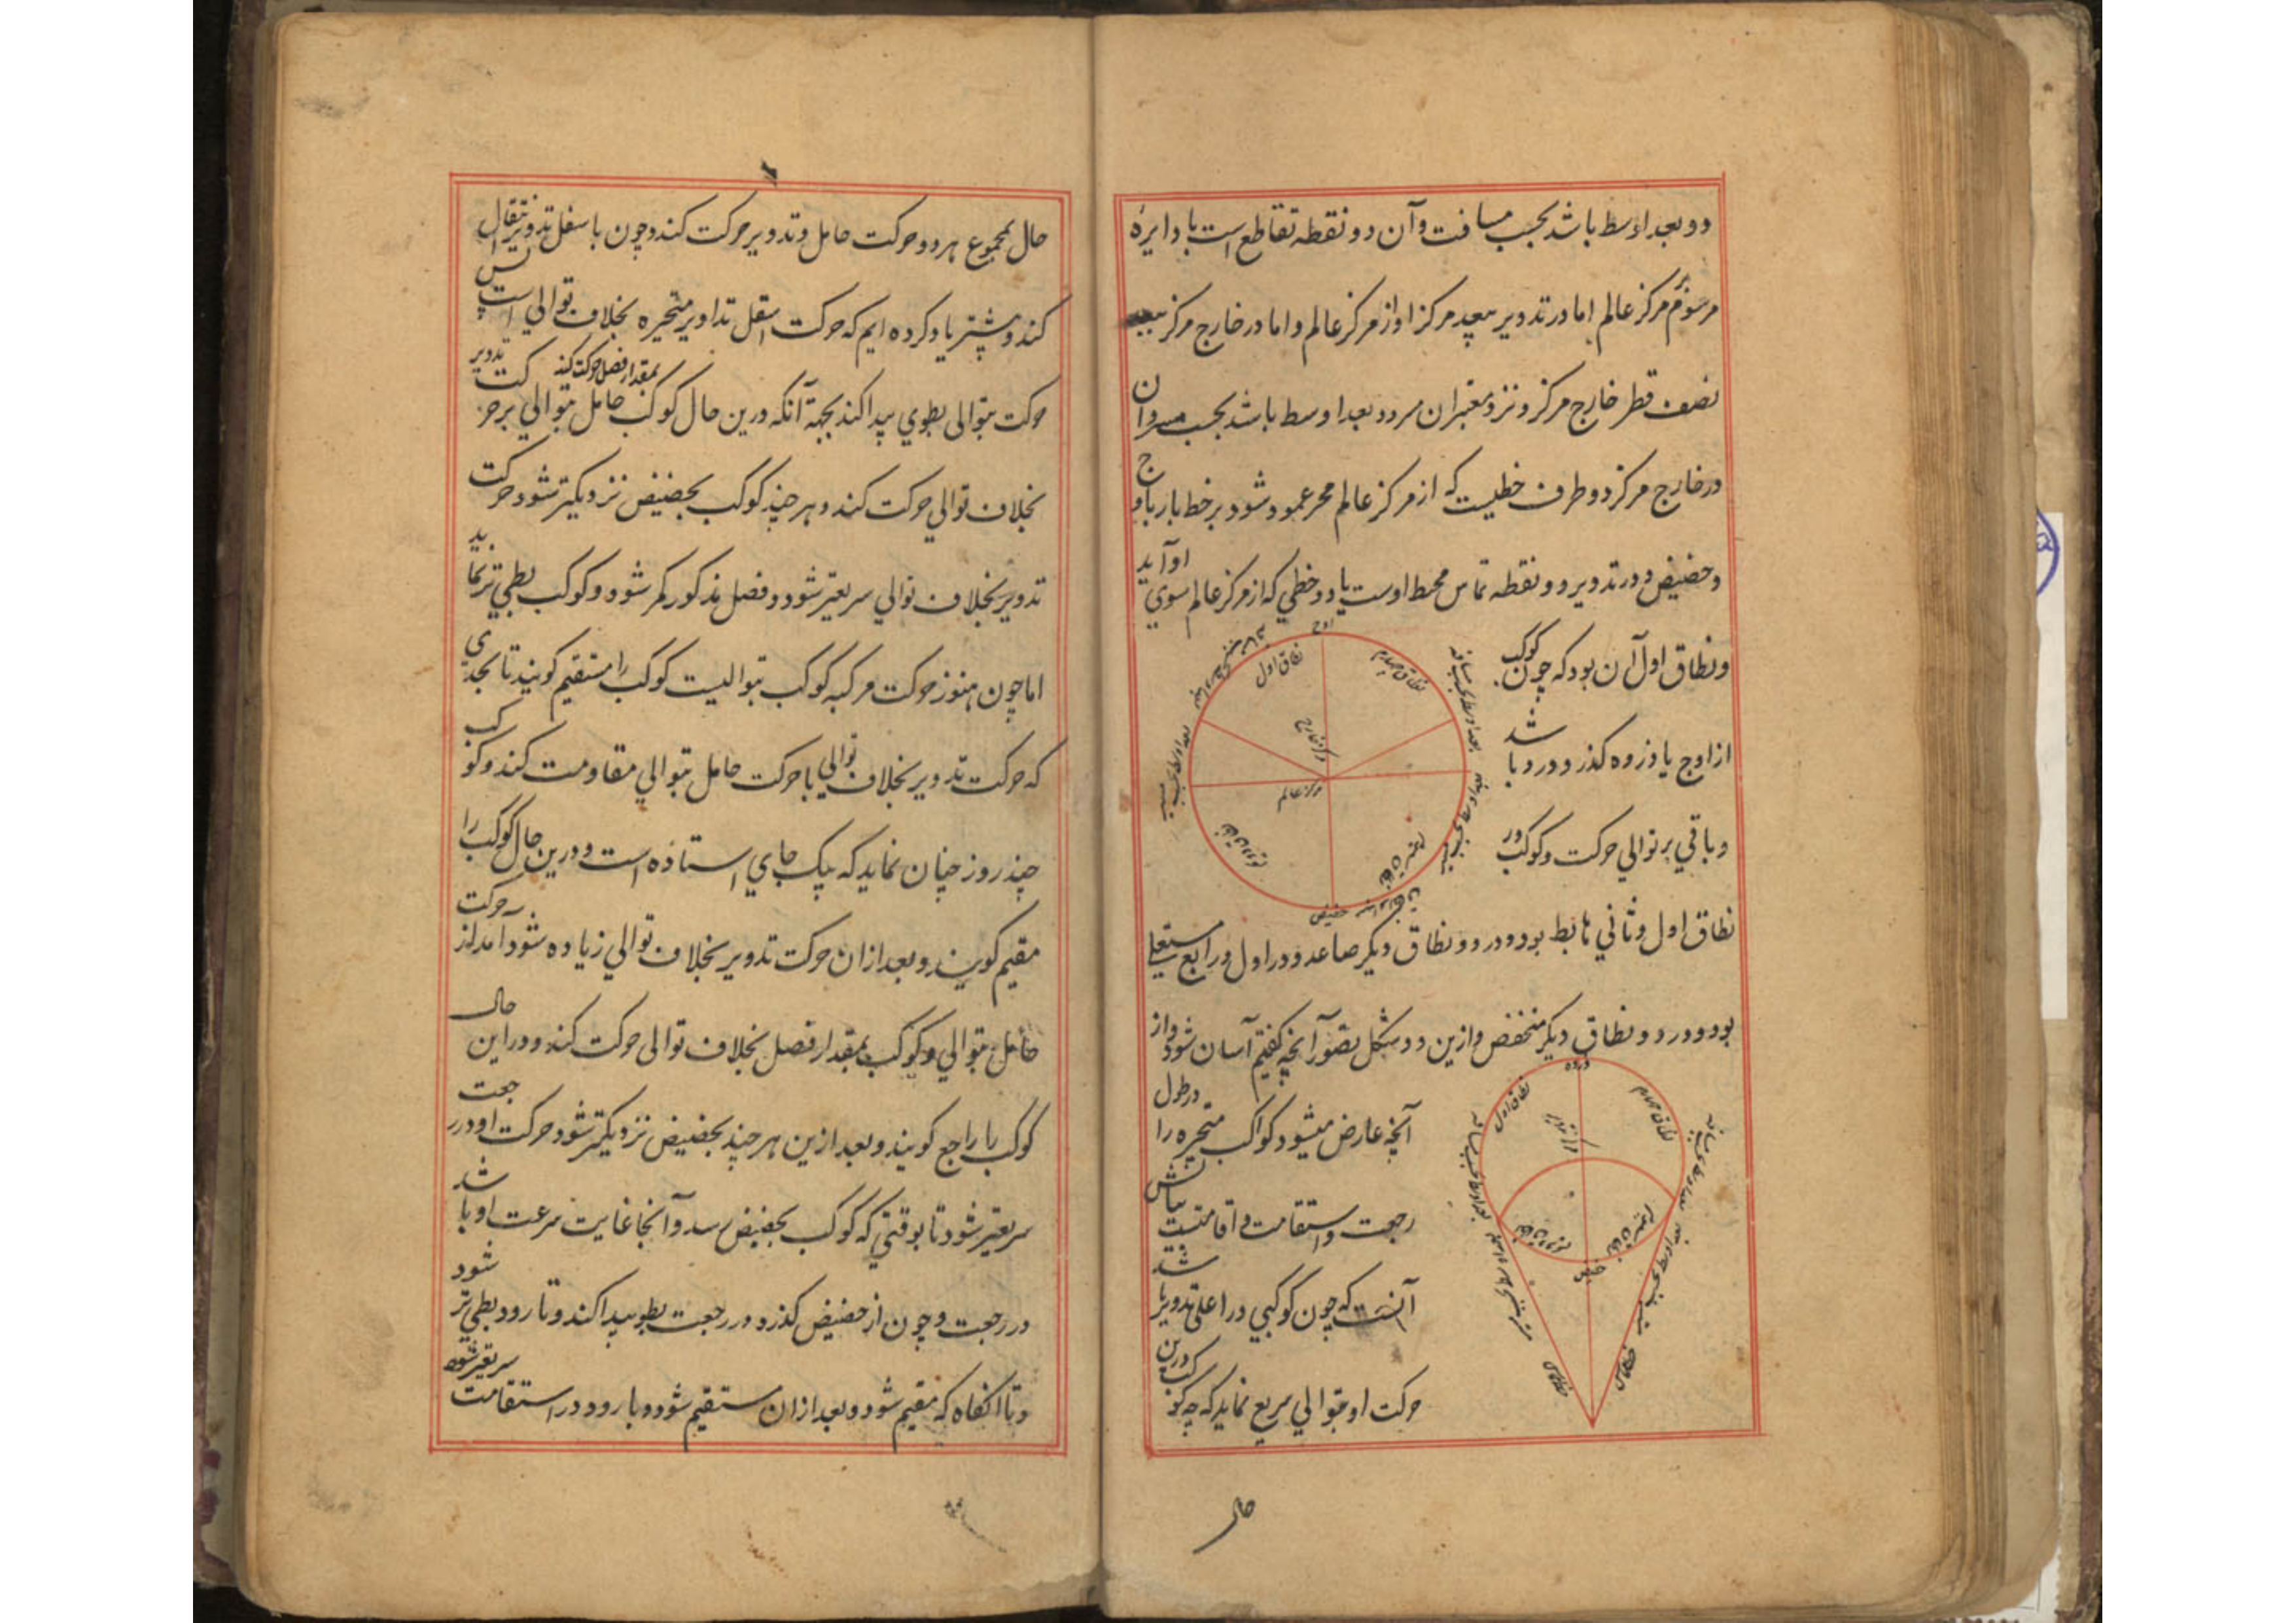 دو بعد اوسط باشد بحسب مسافت وآن دو نقطه تقاطع است با دایرهٔ
مرسوم بر مرکز عالم اما در تدویر ببعد مرکز او از مرکز عالم واما در خارج مرکز ببعد
نصف قطر خارج مرکز ونزد معتبران سر دو بعد اوسط باشد بحسب مسیر وآن
در خارج مرکز دو طرف خطیست که از مرکز عالم عمود شود بر خط مار باوج
وحضیض ودر تدویر دو نقطه تماس محیط اوست با دو خطی که از مرکز عالم سوی او آید
ونطاق اول آن بود که چون کوکب
از اوج یا ذروه کذرد ودر و باشد
وباقي بر توالي حرکت وکوکب در
نطاق اول وثاني هابط بود ودر دو نطاق دیکر صاعد ودر اول ورابع مستعلي
بود ودر دو نطاق دیکر منخفض وازین دو شکل تصور آنچه کفتیم آسان شود واز
آنچه عارض میشود کواکب متحیره را در طول
رجعت واستقامت واقامتست بیانش
آنست که چون کوکبي در اعلی تدویر باشد
حرکت او بتوالي سریع نماید که چه کوکب درین
اوج
نطاق اول
نطاق چهارم
مرکز خارج
مرکز عالم
حضیض
ذروه
نطاق اول
نطاق چهارم
مرکز تدویر
حضیض
خط مماس
خط مماس
حال
حال بمجموع هر دو حرکت حامل وتدویر حرکت کند وچون باسفل تدویر انتقال
کند وپیشتر یاد کرده ایم که حرکت اسفل تداویر متحیره بخلاف توالي است پس
حرکت بتوالی بطوي پیدا کند بجهة آنکه درین حال کوکب بمقدار فصل حرکت کند حامل بتوالي بر حرکت تدویر
بخلاف توالي حرکت کند وهر چند کوکب بحضیض نزدیکتر شود حرکت
تدویر بخلاف توالي سریعتر شود وفصل مذکور کمتر شود وکوکب بطي تر نماید
اما چون هنوز حرکت مرکبه کوکب بتوالیست کوکب را مستقیم کویند تا بحدی
که حرکت تدویر بخلاف توالي با حرکت حامل بتوالي مقاومت کند وکوکب
چند روز چنان نماید که بیک جاي استاده است ودرین حال کوکب را
مقیم کویند وبعد ازان حرکت تدویر بخلاف توالي زیاده شود آمد از حرکت
حامل بتوالي وکوکب بمقدار فصل بخلاف توالی حرکت کند ودراین حال
کوکب را راجع کویند وبعد ازین هر چند بحضیض نزدیکتر شود حرکت او در رجعت
سریعتر شود تا بوقتي که کوکب بحضیض رسد وآنجا غایت سرعت او باشد
در رجعت وچون از حضیض کذرد در رجعت بطو پیدا کند وتا رود بطي تر شود
وتا انکاه که مقیم شود وبعد ازان مستقیم شود وبا رود در استقامت سریعتر شود